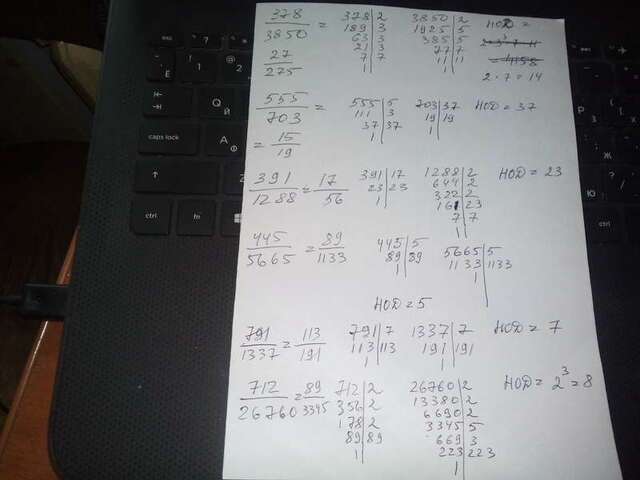 378/3850 = 378|2 3850|2 НОД =
189|3 1925|5
63|3 385|5
27/275 21|3 77|7
7|7 11|11 2·7=14
1 1
555/703 = 555|5 703|37 НОД = 37
111|3 19|19
37|37 1
= 15/19 1
391/1288 = 17/56 391|17 1288|2 НОД = 23
23|23 644|2
1 322|2
161|23
7|7
1
445/5665 = 89/1133 445|5 5665|5
89|89 1133|1133
1 1
НОД = 5
791/1337 = 113/191 791|7 1337|7 НОД = 7
113|113 191|191
1 1
712/26760 = 89/3345 712|2 26760|2 НОД = 2³ = 8
356|2 13380|2
178|2 6690|2
89|89 3345|5
1 669|3
223|223
1
caps lock
ctrl
fn
alt
ctrl